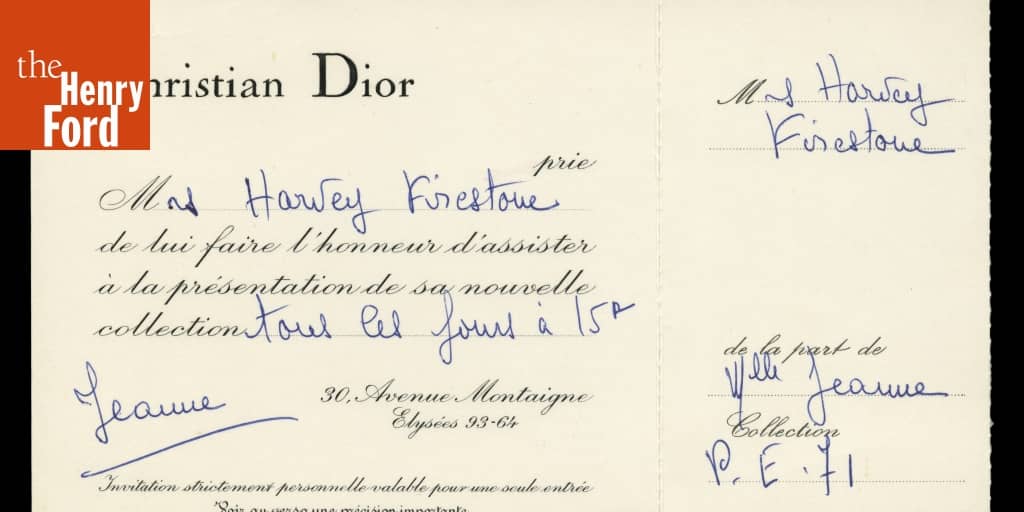 the
Henry
Ford
hristian Dior
prie
Mrs Harvey Firestone
de lui faire l'honneur d'assister
à la présentation de sa nouvelle
collection tous les jours à 15h
Jeanne
30, Avenue Montaigne
Elysées 93-64
Invitation strictement personnelle valable pour une seule entrée
Voir au verso une précision importante
Mrs Harvey
Firestone
de la part de
Mlle Jeanne
Collection
P. E. 71